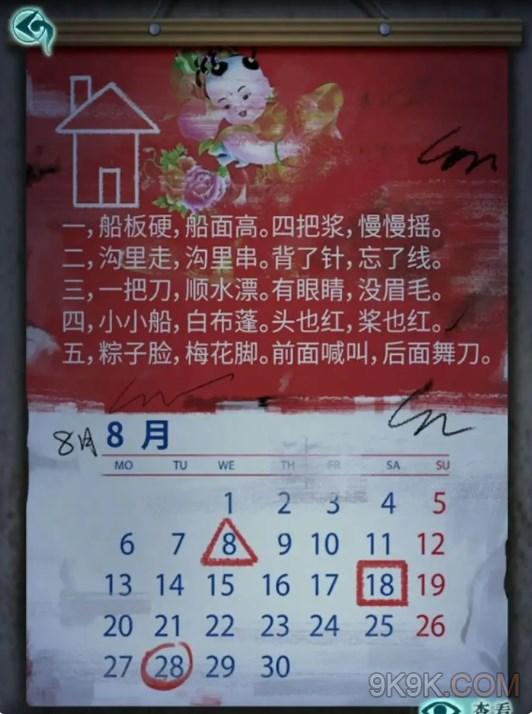 一，船板硬，船面高。四把浆，慢慢摇。
二，沟里走，沟里串。背了针，忘了线。
三，一把刀，顺水漂。有眼睛，没眉毛。
四，小小船，白布蓬。头也红，桨也红。
五，粽子脸，梅花脚。前面喊叫，后面舞刀。
8月 8 月
MO TU WE TH FR SA SU
1 2 3 4 5
6 7 8 9 10 11 12
13 14 15 16 17 18 19
20 21 22 23 24 25 26
27 28 29 30
9K9K.COM
查看